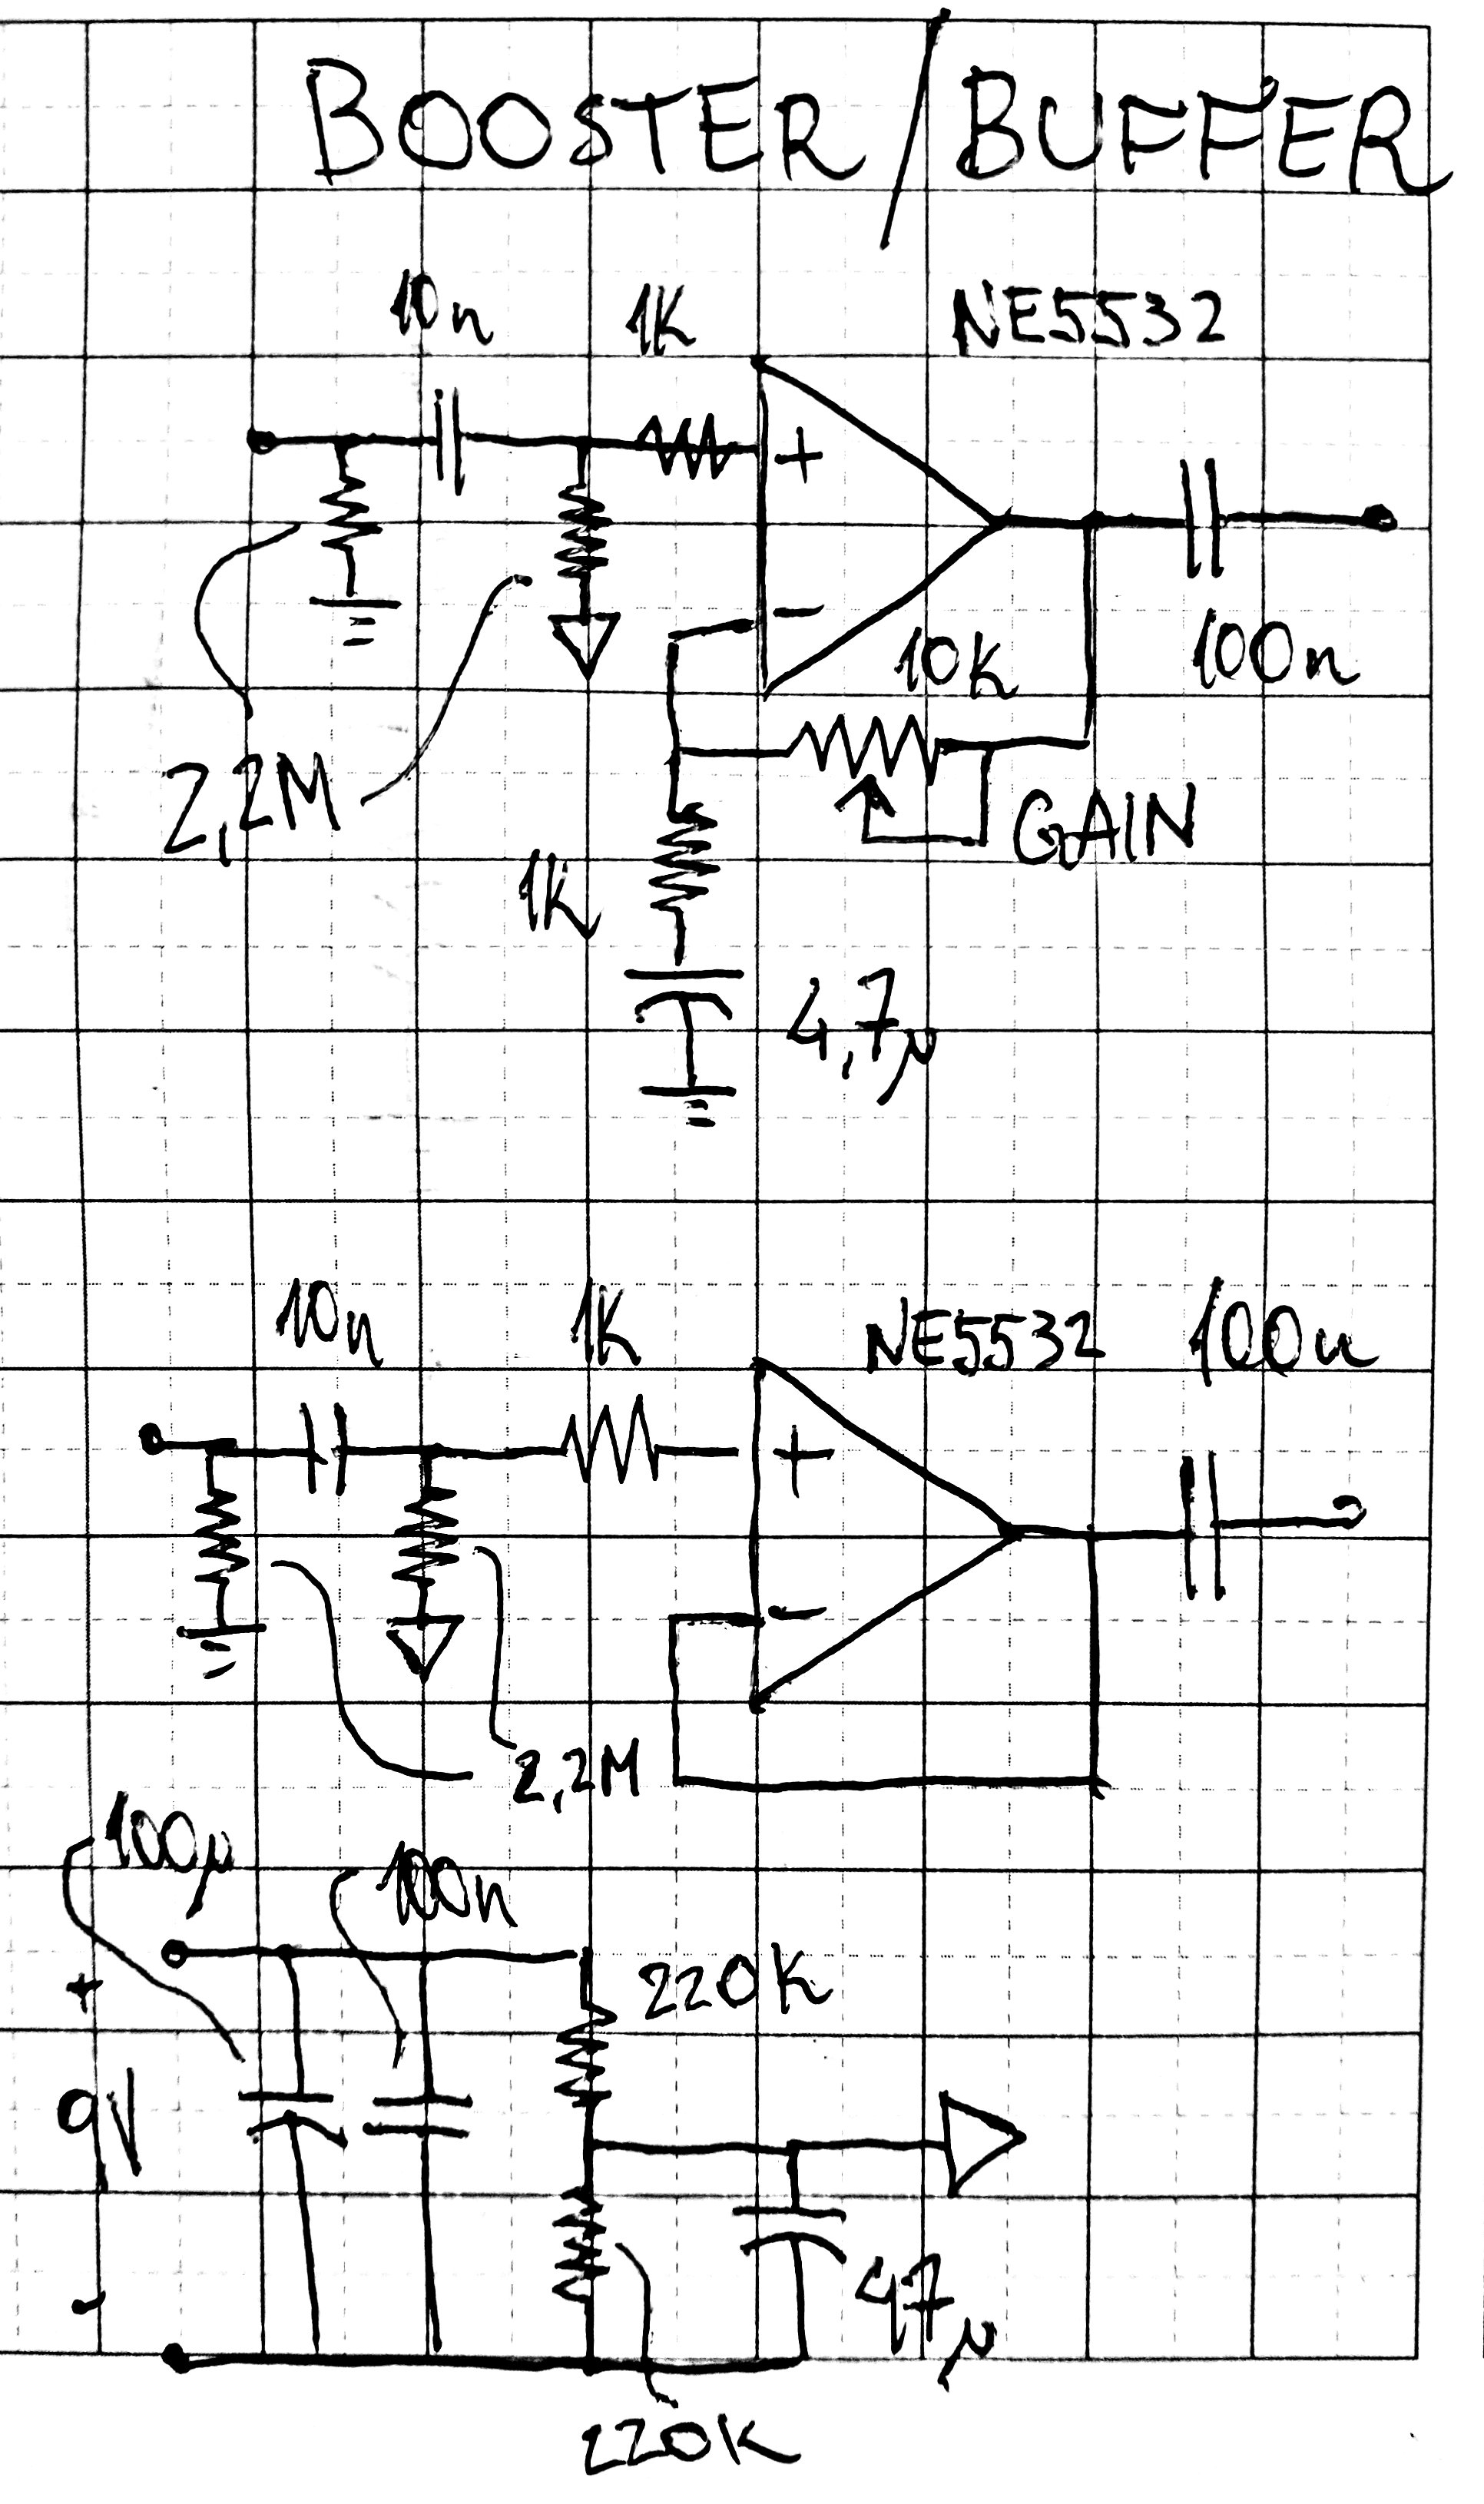 BOOSTER/BUFFER
10n 1K NE5532
+
-
10K 100n
2,2M
GAIN
1K
4,7µ
10n 1K NE5532 100n
+
-
2,2M
100µ 100n
+ 220K
9V
-
47µ
220K